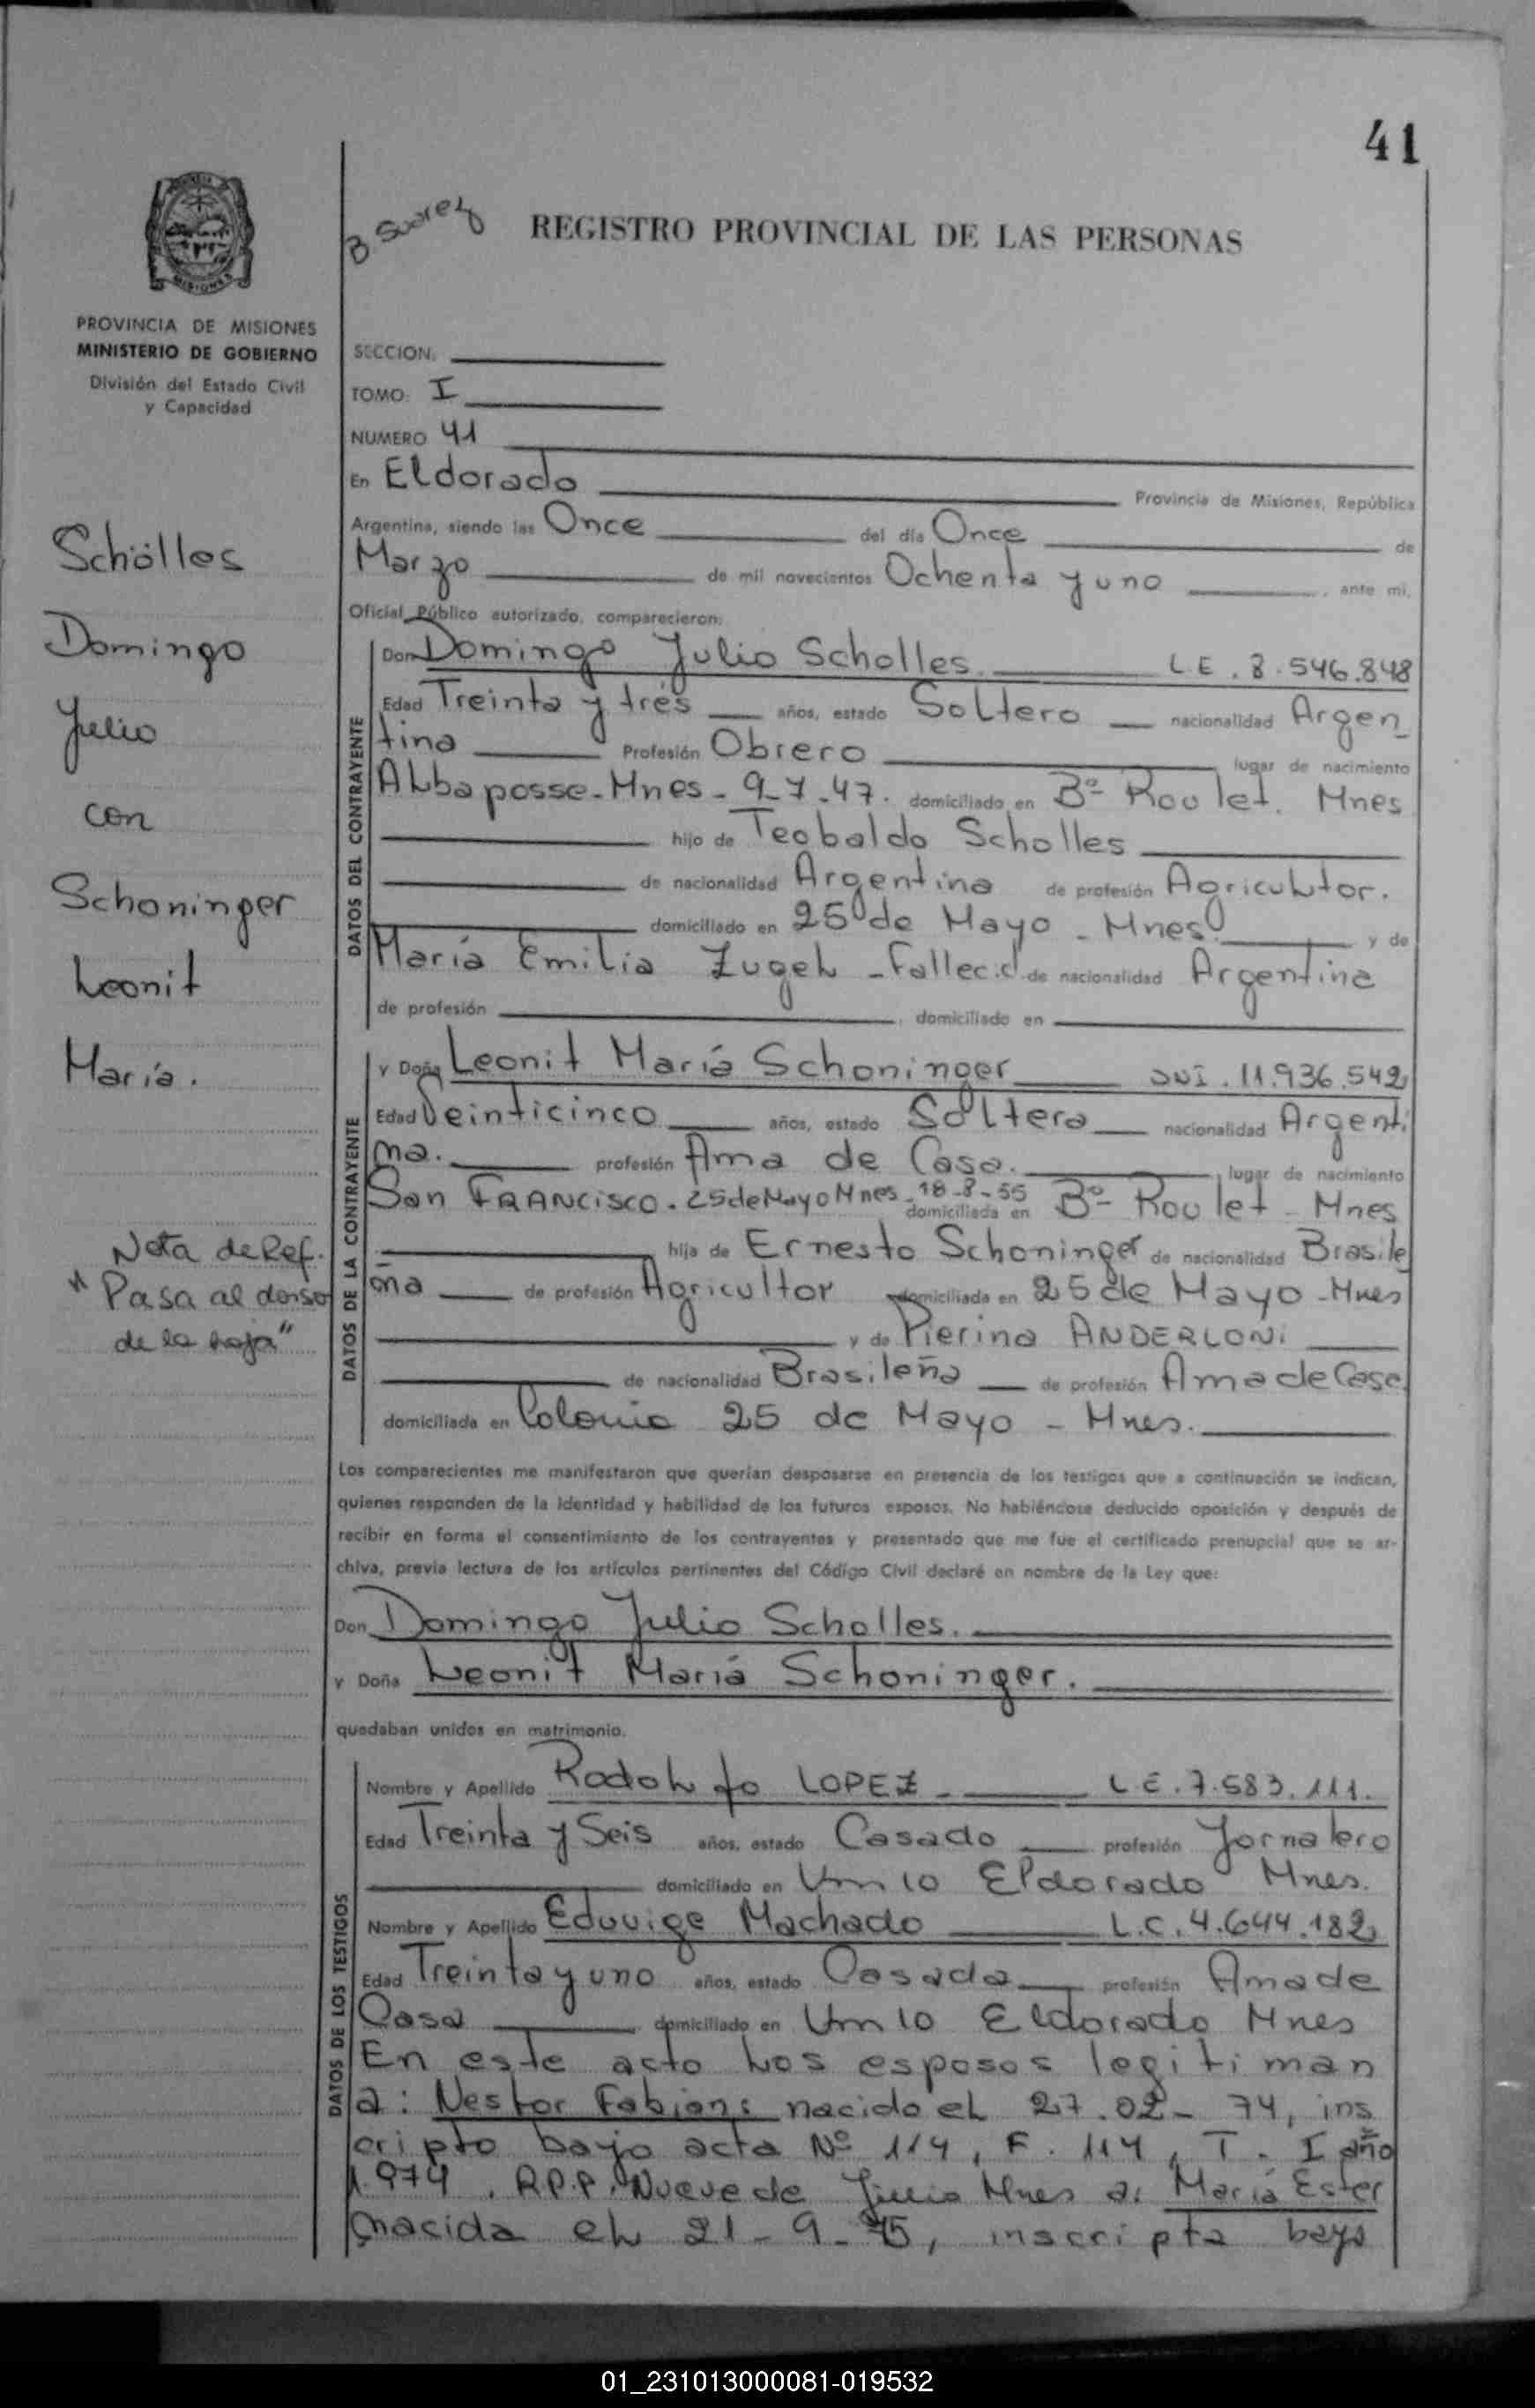 41
B. Suarez
REGISTRO PROVINCIAL DE LAS PERSONAS
MISIONES
PROVINCIA DE MISIONES
MINISTERIO DE GOBIERNO
División del Estado Civil
y Capacidad
Schölles
Domingo
Julio
con
Schoninger
Leonit
María.
Nota de Ref.
"Pasa al dorso
de la hoja"
SECCION.
TOMO: I
NUMERO 41
En Eldorado Provincia de Misiones, República
Argentina, siendo las Once del día Once de
Marzo de mil novecientos Ochenta y uno, ante mi,
Oficial Público autorizado, comparecieron:
DATOS DEL CONTRAYENTE
Don Domingo Julio Scholles. L.E. 8.546.848
Edad Treinta y trés años, estado Soltero nacionalidad Argen
tina Profesión Obrero lugar de nacimiento
Alba posse - Mnes - 9-7-47. domiciliado en Bº Roulet. Mnes
hijo de Teobaldo Scholles
de nacionalidad Argentina de profesión Agricultor.
domiciliado en 25 de Mayo - Mnes. y de
María Emilia Zugel - Fallecid. de nacionalidad Argentina
de profesión , domiciliado en
DATOS DE LA CONTRAYENTE
y Doña Leonit María Schoninger DNI. 11.936.542
Edad Veinticinco años, estado Soltera nacionalidad Argenti
na. profesión Ama de Casa. lugar de nacimiento
San FRANCISCO. 25 de Mayo Mnes. 18-8-55 domiciliada en Bº Roulet - Mnes
hija de Ernesto Schoninger de nacionalidad Brasile
ña de profesión Agricultor domiciliada en 25 de Mayo - Mnes
y de Pierina ANDERLONI
de nacionalidad Brasileña de profesión Ama de Casa
domiciliada en Colonia 25 de Mayo - Mnes.
Los comparecientes me manifestaron que querían desposarse en presencia de los testigos que a continuación se indican,
quienes responden de la identidad y habilidad de los futuros esposos. No habiéndose deducido oposición y después de
recibir en forma el consentimiento de los contrayentes y presentado que me fue el certificado prenupcial que se ar-
chiva, previa lectura de los artículos pertinentes del Código Civil declaré en nombre de la Ley que:
Don Domingo Julio Scholles.
y Doña Leonit María Schoninger.
quedaban unidos en matrimonio.
DATOS DE LOS TESTIGOS
Nombre y Apellido Rodolfo LOPEZ - L.E. 7.583.111.
Edad Treinta y Seis años, estado Casado profesión Jornalero
domiciliado en Km 10 Eldorado Mnes.
Nombre y Apellido Eduvige Machado L.C. 4.644.182
Edad Treinta y uno años, estado Casada profesión Ama de
Casa domiciliado en Km 10 Eldorado Mnes
En este acto los esposos legitiman
a: Nestor Fabian: nacido el 27.02-74, ins
cripto bajo acta Nº 114, F. 114, T. I año
1.974. R.P.P. Nueve de Julio Mnes a: María Ester
nacida el 21-9-75, inscripta bajo
01_231013000081-019532